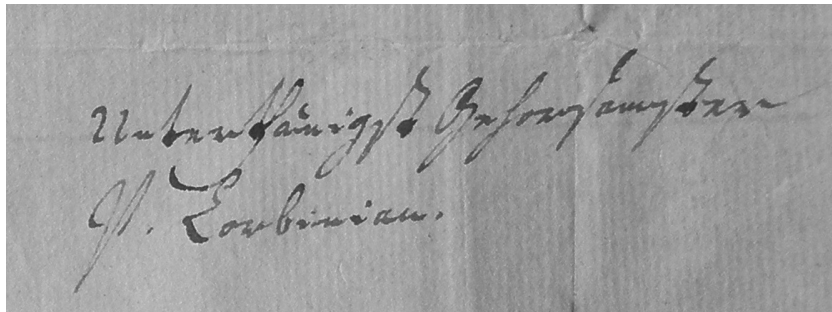 Unterthänigst Gehorsamster
P. Corbinian.